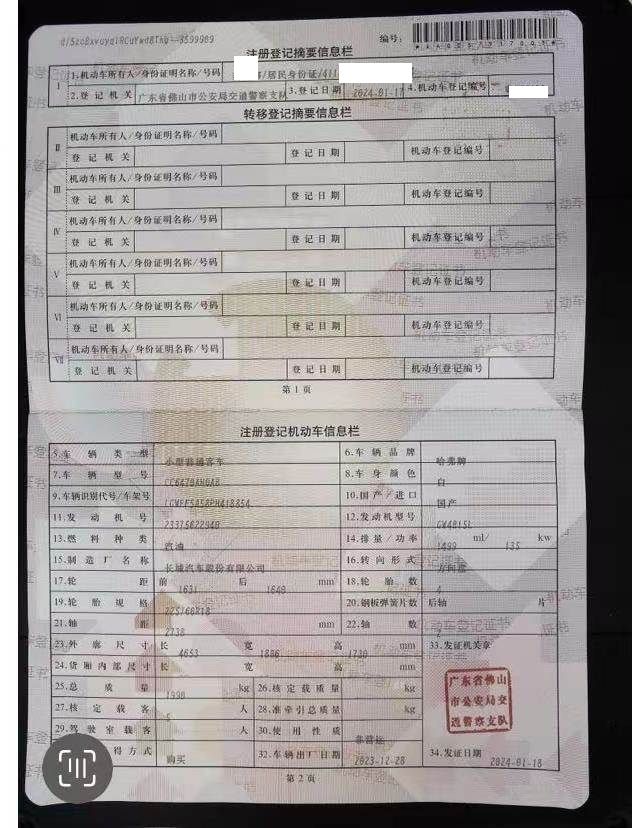 编号:
注册登记摘要信息栏
I 1.机动车所有人/身份证明名称/号码 /居民身份证/411
2.登记机关 广东省佛山市公安局交通警察支队 3.登记日期 2024-01-17 4.机动车登记编号
转移登记摘要信息栏
II 机动车所有人/身份证明名称/号码
登记机关 登记日期 机动车登记编号
III 机动车所有人/身份证明名称/号码
登记机关 登记日期 机动车登记编号
IV 机动车所有人/身份证明名称/号码
登记机关 登记日期 机动车登记编号
V 机动车所有人/身份证明名称/号码
登记机关 登记日期 机动车登记编号
VI 机动车所有人/身份证明名称/号码
登记机关 登记日期 机动车登记编号
VII 机动车所有人/身份证明名称/号码
登记机关 登记日期 机动车登记编号
第1页
注册登记机动车信息栏
5.车辆类型 小型普通客车 6.车辆品牌 哈弗牌
7.车辆型号 8.车身颜色 白
9.车辆识别代号/车架号 10.国产/进口 国产
11.发动机号 12.发动机型号 GW4B15L
13.燃料种类 汽油 14.排量/功率 1499 ml/ 135 kw
15.制造厂名称 长城汽车股份有限公司 16.转向形式 方向盘
17.轮距 前 1631 后 1640 mm 18.轮胎数 4
19.轮胎规格 225/60R18 20.钢板弹簧片数 后轴 片
21.轴距 2738 mm 22.轴数 2
23.外廓尺寸 长 4653 宽 1886 高 1730 mm 33.发证机关章
24.货厢内部尺寸 长 宽 高 mm
25.总质量 1990 kg 26.核定载质量 kg
27.核定载客 5 人 28.准牵引总质量 kg
29.驾驶室载客 人 30.使用性质 非营运
得方式 购买 32.车辆出厂日期 2023-12-28 34.发证日期 2024-01-18
广东省佛山
市公安局交
通警察支队
第2页